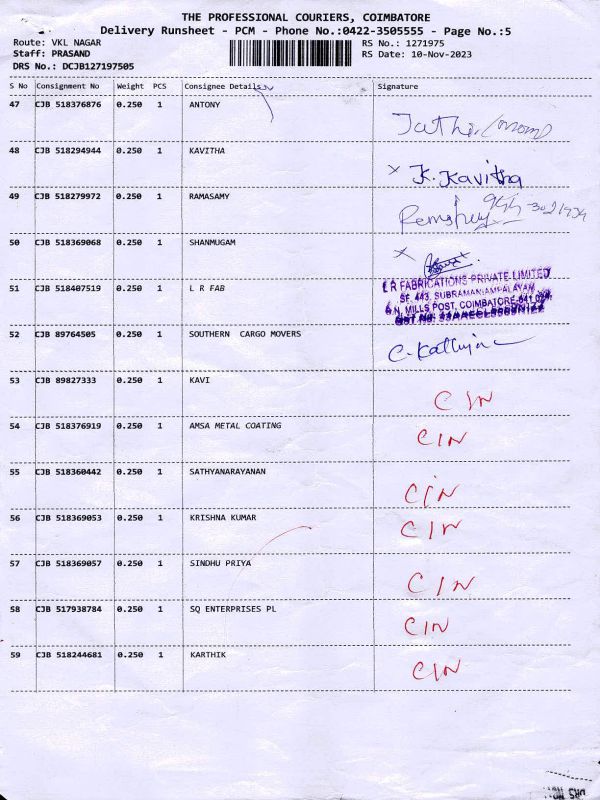 THE PROFESSIONAL COURIERS, COIMBATORE
Delivery Runsheet - PCM - Phone No.:0422-3505555 - Page No.:5
Route: VKL NAGAR RS No.: 1271975
Staff: PRASAND RS Date: 10-Nov-2023
DRS No.: DCJB127197505
S No Consignment No Weight PCS Consignee Details Signature
47 CJB 518376876 0.250 1 ANTONY
48 CJB 518294944 0.250 1 KAVITHA x K. Kavitha
49 CJB 518279972 0.250 1 RAMASAMY
50 CJB 518369068 0.250 1 SHANMUGAM x
51 CJB 518407519 0.250 1 L R FAB
L R FABRICATIONS PRIVATE LIMITED
SF. 443, SUBRAMANIAMPALAYAM
G.N. MILLS POST, COIMBATORE-641 029.
52 CJB 89764505 0.250 1 SOUTHERN CARGO MOVERS
53 CJB 89827333 0.250 1 KAVI CIN
54 CJB 518376919 0.250 1 AMSA METAL COATING CIN
55 CJB 518360442 0.250 1 SATHYANARAYANAN CIN
56 CJB 518369053 0.250 1 KRISHNA KUMAR CIN
57 CJB 518369057 0.250 1 SINDHU PRIYA CIN
58 CJB 517938784 0.250 1 SQ ENTERPRISES PL CIN
59 CJB 518244681 0.250 1 KARTHIK CIN